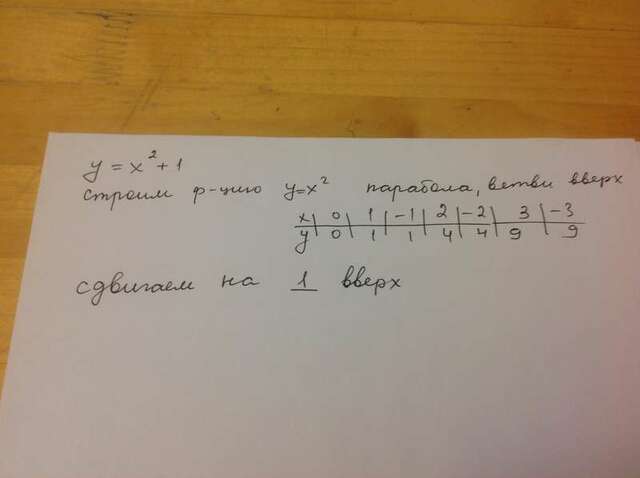 y = x² + 1
строим ф-цию y=x² парабола, ветви вверх
x | 0 | 1 | -1 | 2 | -2 | 3 | -3
y | 0 | 1 | 1 | 4 | 4 | 9 | 9
сдвигаем на 1 вверх